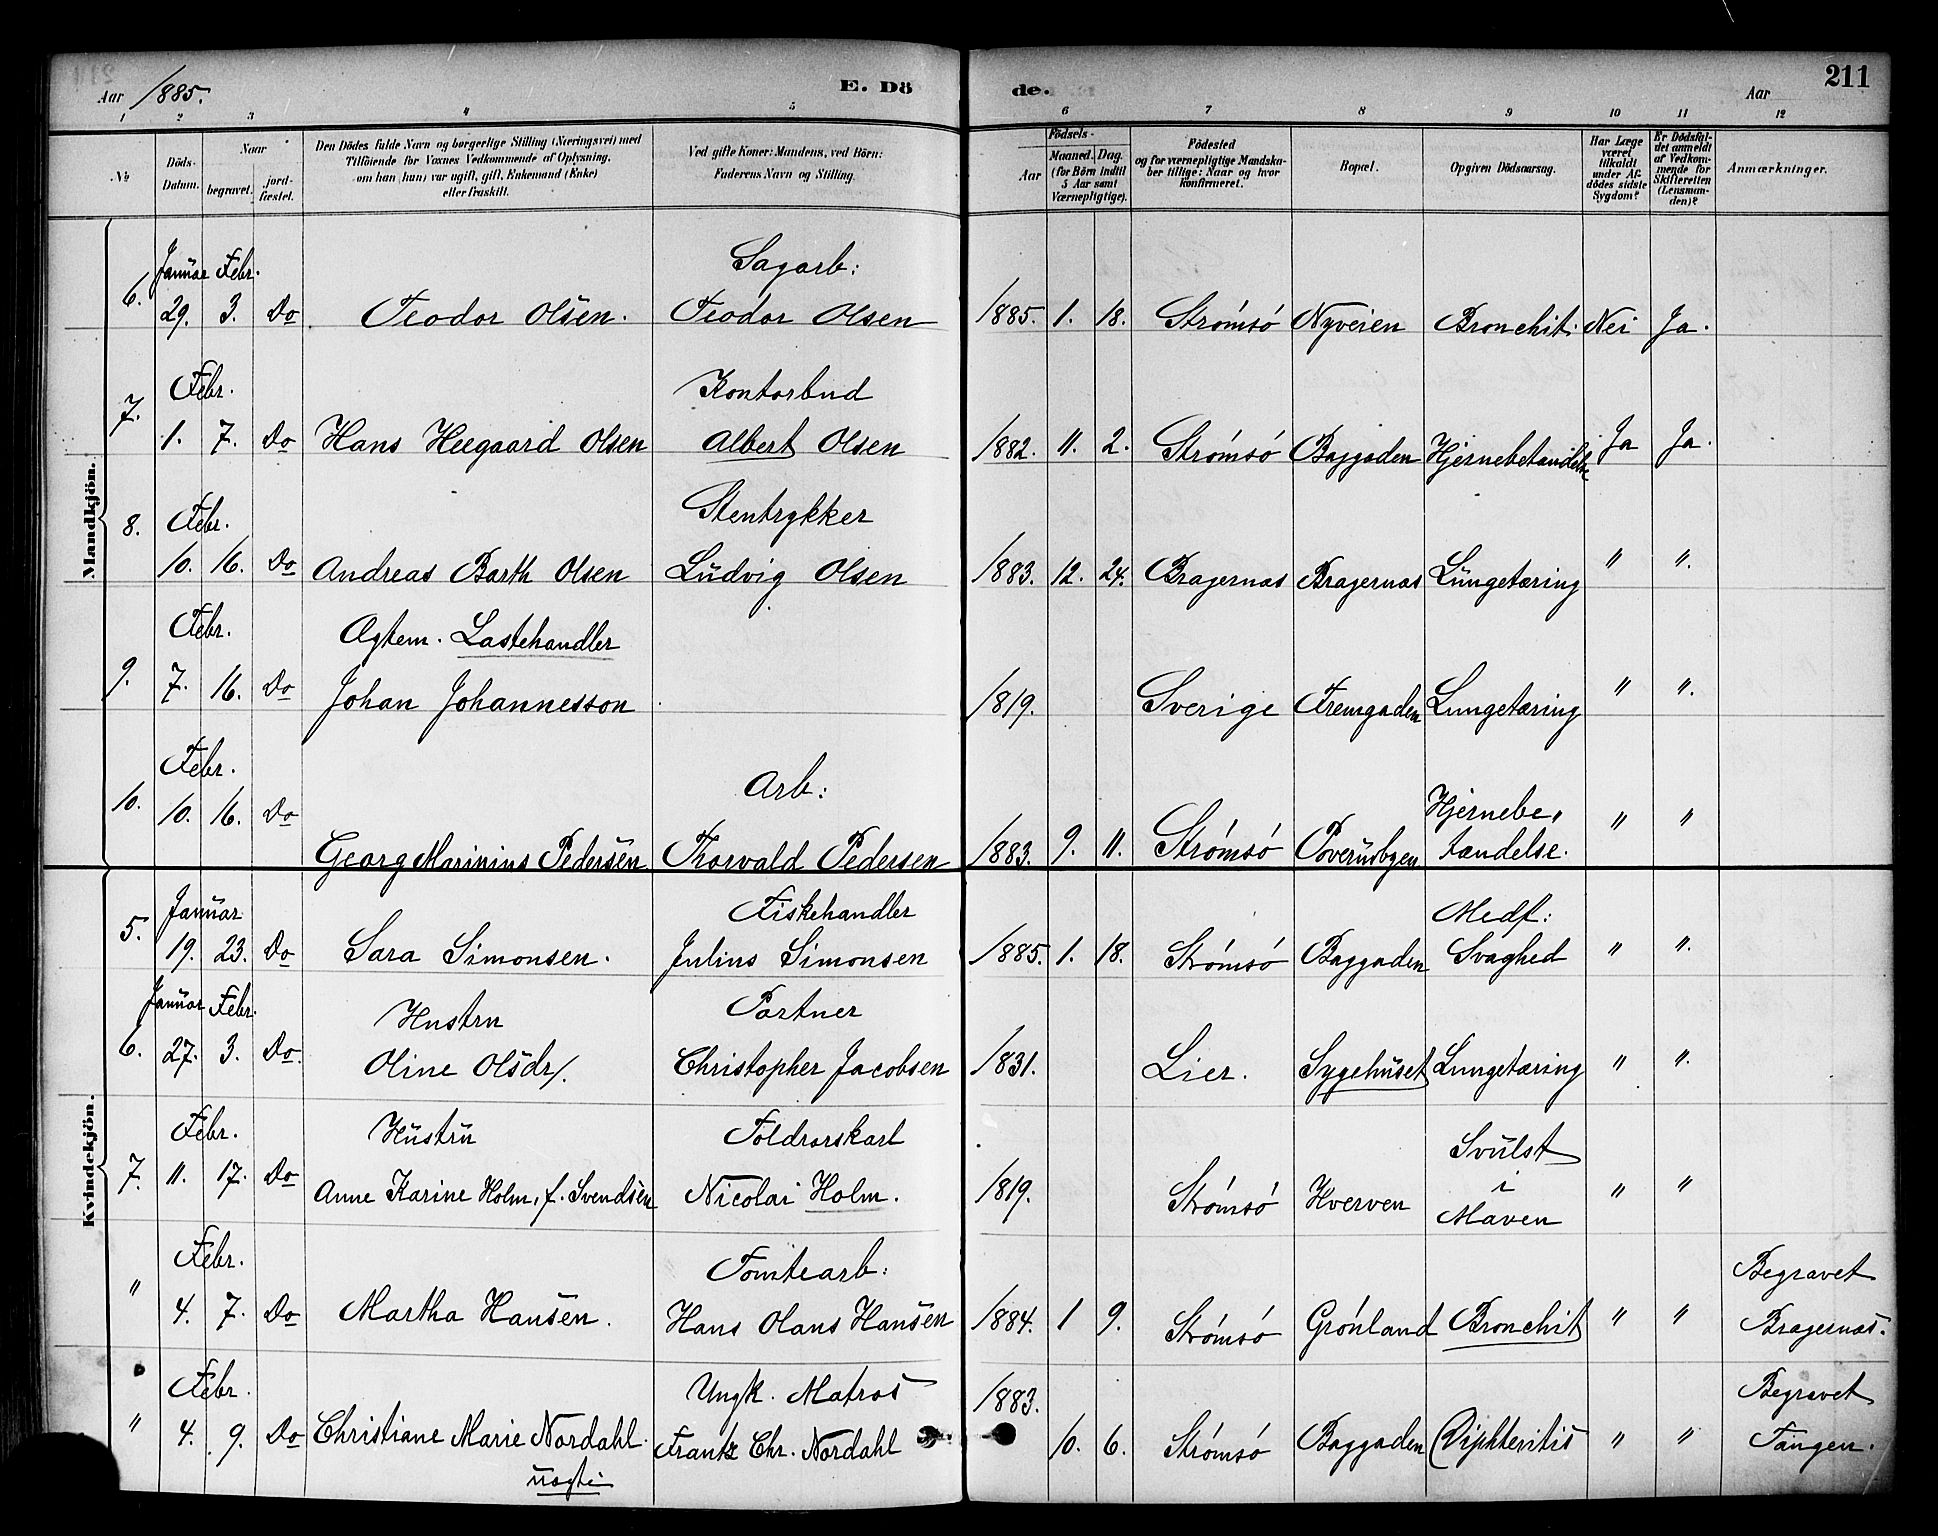 Aar 1885. E. Dö de. Aar 211
1 2 3 4 5 6 7 8 9 10 11 12
No
Döds-Datum.
Naar
begravet.
jord-fæstet.
Den Dödes fulde Navn og borgerlige Stilling (Næringsvei) med
Tilföiende for Voxnes Vedkommende af Oplysning,
om han (hun) var ugift, gift, Enkemand (Enke)
eller fraskilt.
Ved gifte Koner: Mandens, ved Börn:
Faderens Navn og Stilling.
Födsels-
Aar
Maaned. Dag.
(for Börn indtil
5 Aar samt
Værnepligtige).
Födested
og for værnepligtige Mandska-
ber tillige: Naar og hvor
konfirmeret.
Bopæl.
Opgiven Dödsaarsag.
Har Læge
været
tilkaldt
under Af-
dödes sidste
Sygdom?
Er Dödsfal-
det anmeldt
af Vedkom-
mende for
Skifteretten
(Lensman-
den)?
Anmærkninger.
Mandkjön.
Januar Febr. Sagarb:
6. 29. 3. Do Teodor Olsen. Teodor Olsen 1885. 1. 18. Strømsó Nyveien Bronchit. Nei Ja.
Febr. Kontorbud
7. 1. 7. Do Hans Heegaard Olsen Albert Olsen 1882. 11. 2. Strømsó Baggaden Hjernebetændelse Ja Ja.
8. Febr. Stentrykker
10. 16. Do Andreas Barth Olsen Ludvig Olsen 1883. 12. 24. Bragernæs Bragernæs Lungetæring " ".
Febr. Ægtem. Lastehandler
9. 7. 16. Do Johan Johannesson 1819. Sverige Fremgaden Lungetæring " ".
Febr. Arb: Hjernebe,
10. 10. 16. Do Georg Marinius Pedersen Thorvald Pedersen 1883. 9. 11. Strømsó Poverusbyen tændelse. " "
Kvindekjön.
Januar Fiskehandler Medf:
5. 19. 23. Do Sara Simonsen. Julius Simonsen 1885. 1. 18. Strømsó Baggaden Svaghed " ".
Januar Febr. Hustru Partner
6. 27. 3. Do. Oline Olsdr/. Christopher Jacobsen 1831. Lier. Sygehuset Lungetæring " ".
Febr. Hustru Foldrorskarl Svulst
7. 11. 17. Do Anne Karine Holm, f. Svendsen Nicolai Holm. 1819. Strømsó Hverven i Maven " "
Febr. Tomtearb: Begravet
" 4. 7. Do Martha Hansen. Hans Olaus Hansen 1884. 1 9. Strømsó Grónland Bronchit " " Bragernæs.
Febr. Ungk. Matros 1883. Begravet
" 4. 9. Do Christiane Marie Nordahl. Frantz Chr. Nordahl 10. 6. Strømsó Baggaden Diphteritis " " Tangen.
uægte